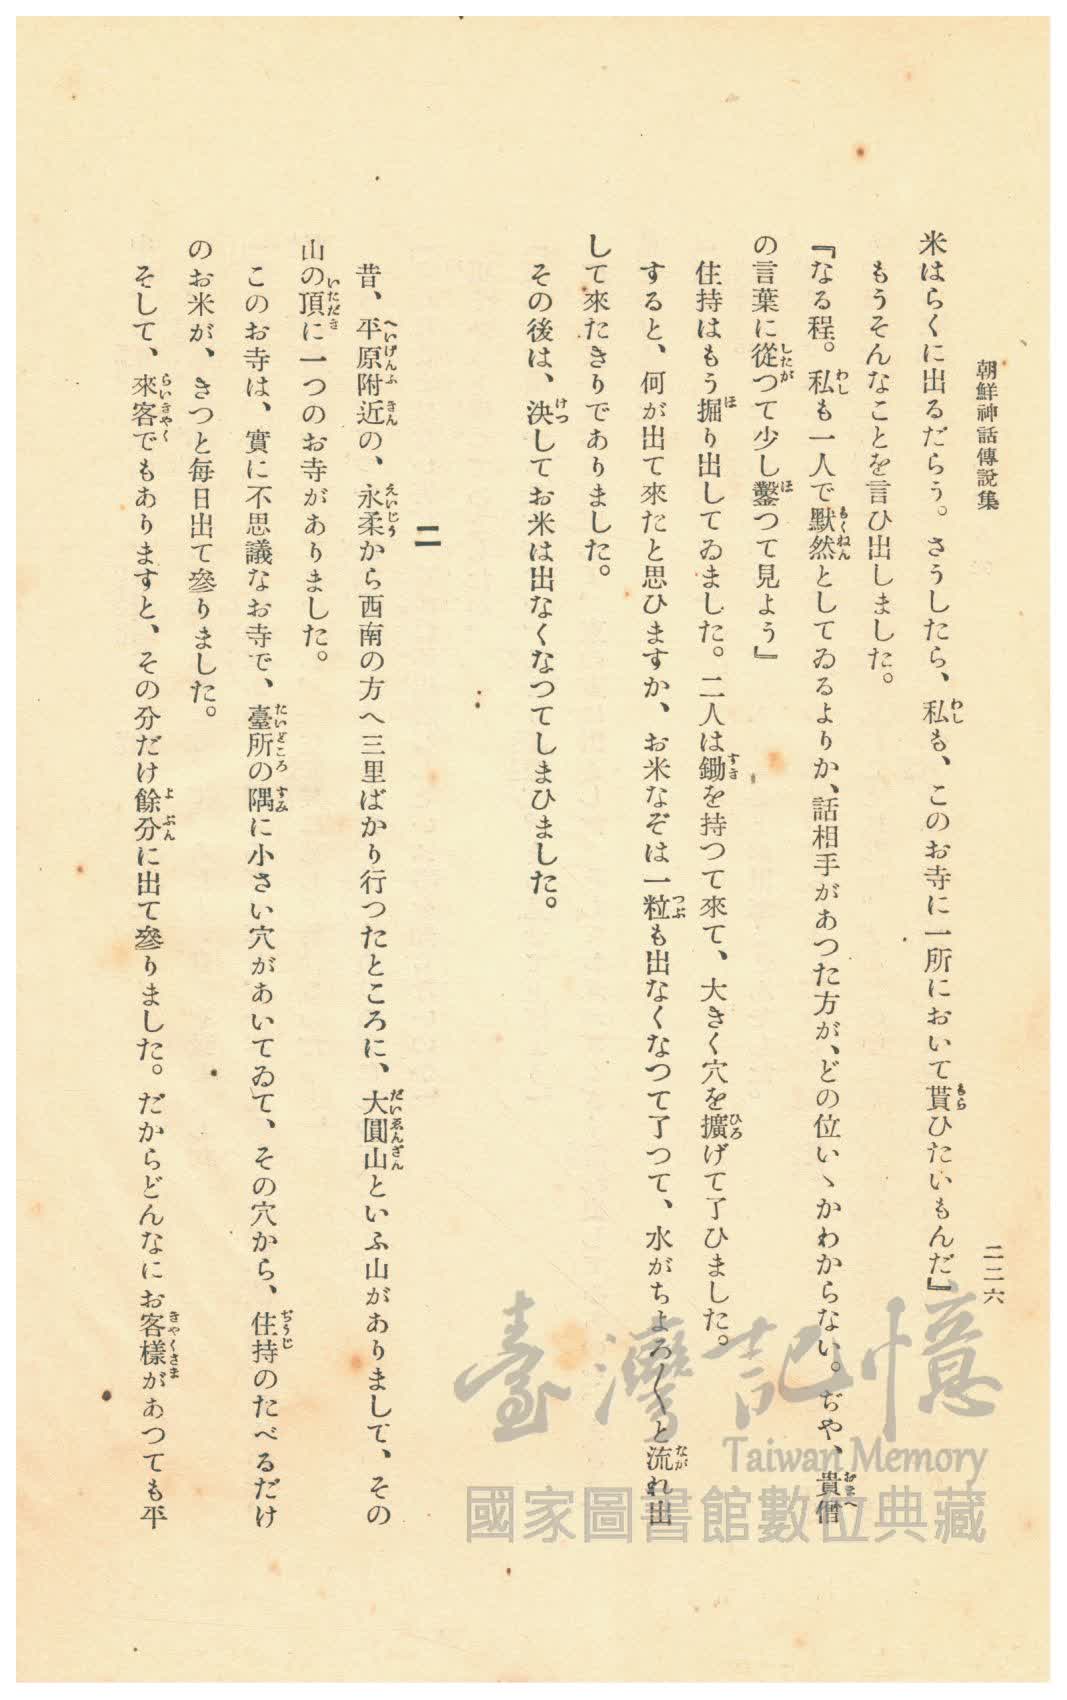 朝鮮神話傳說集
二二六
米はらくに出るだらう。さうしたら、私も、このお寺に一所において貰ひたいもんだ』
もうそんなことを言ひ出しました。
『なる程。私も一人で默然としてゐるよりか、話相手があつた方が、どの位いゝかわからない。ぢや、貴僧
の言葉に從つて少し鑿つて見よう』
住持はもう掘り出してゐました。二人は鋤を持つて來て、大きく穴を擴げて了ひました。
すると、何が出て來たと思ひますか、お米なぞは一粒も出なくなつて了つて、水がちよろ〱と流れ出
して來たきりでありました。
その後は、決してお米は出なくなつてしまひました。
二
昔、平原附近の、永柔から西南の方へ三里ばかり行つたところに、大圓山といふ山がありまして、その
山の頂に一つのお寺がありました。
このお寺は、實に不思議なお寺で、臺所の隅に小さい穴があいてゐて、その穴から、住持のたべるだけ
のお米が、きつと毎日出て參りました。
そして、來客でもありますと、その分だけ餘分に出て參りました。だからどんなにお客樣があつても平
臺灣記憶
Taiwan Memory
國家圖書館數位典藏